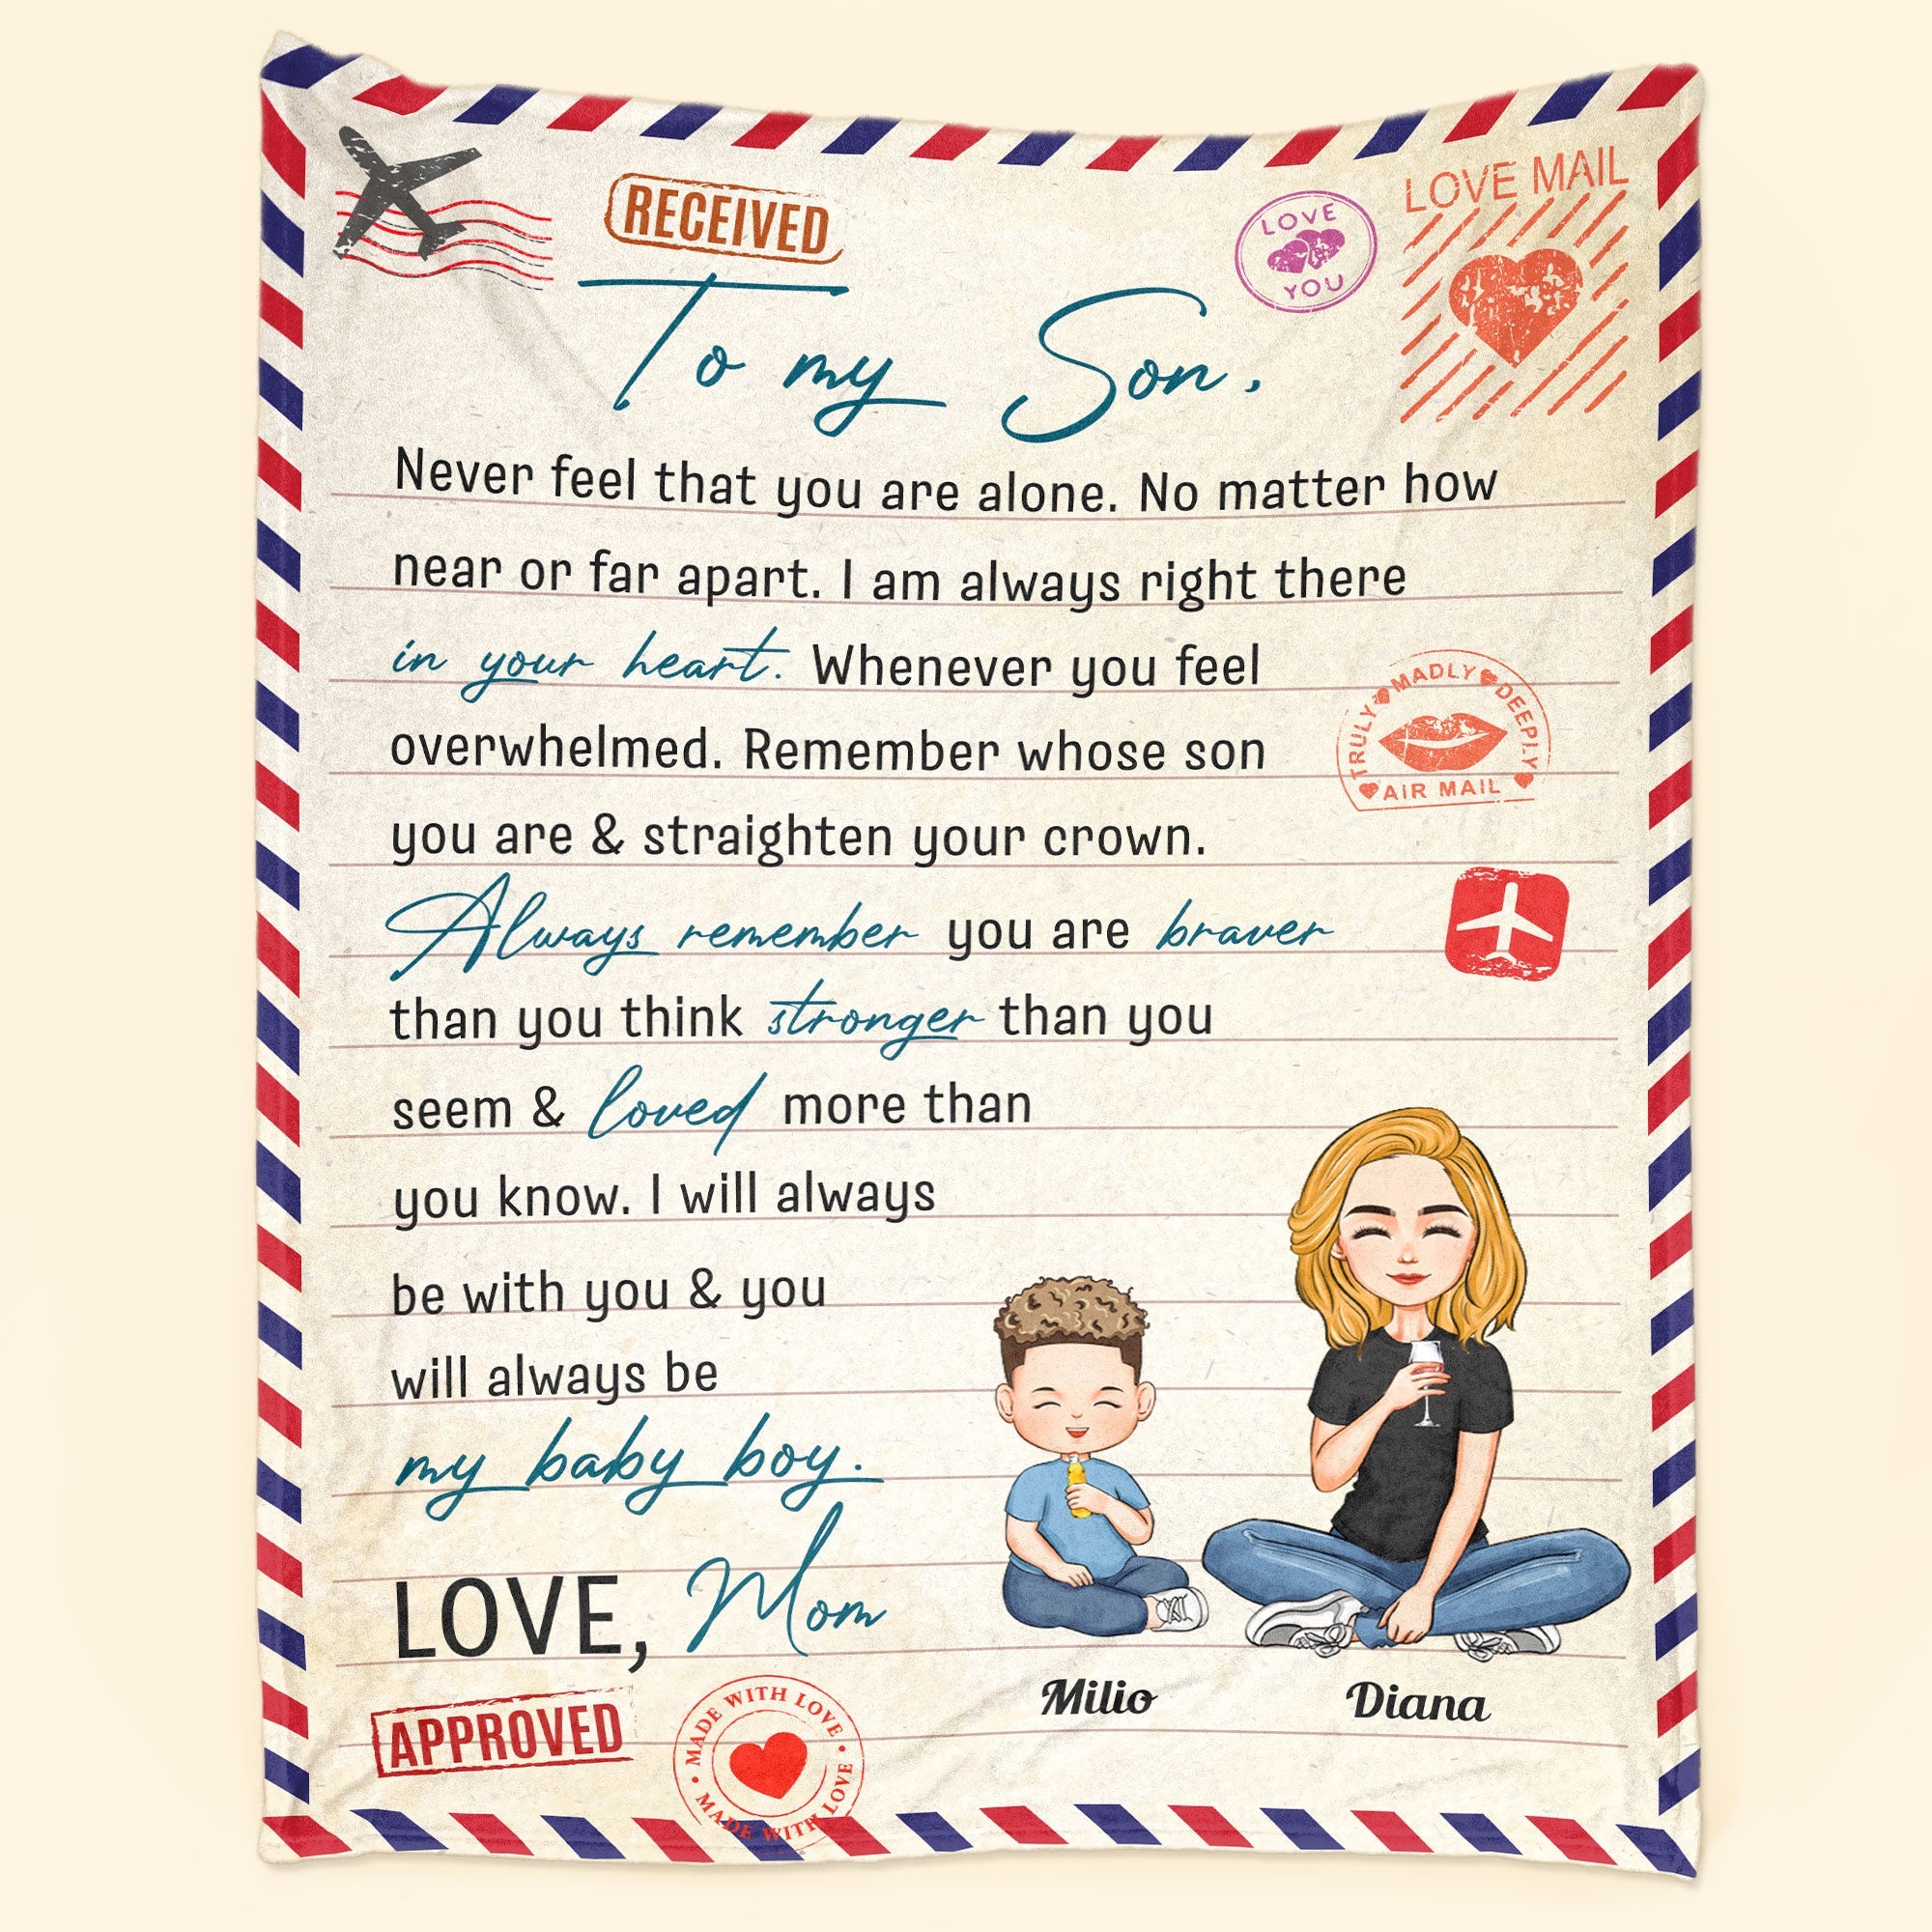 RECEIVED
LOVE YOU
LOVE MAIL
To my Son,
Never feel that you are alone. No matter how
near or far apart. I am always right there
in your heart. Whenever you feel
overwhelmed. Remember whose son
you are & straighten your crown.
TRULY MADLY DEEPLY
AIR MAIL
Always remember you are braver
than you think stronger than you
seem & loved more than
you know. I will always
be with you & you
will always be
my baby boy.
LOVE, Mom
Milio
Diana
APPROVED
MADE WITH LOVE
MADE WITH LOVE